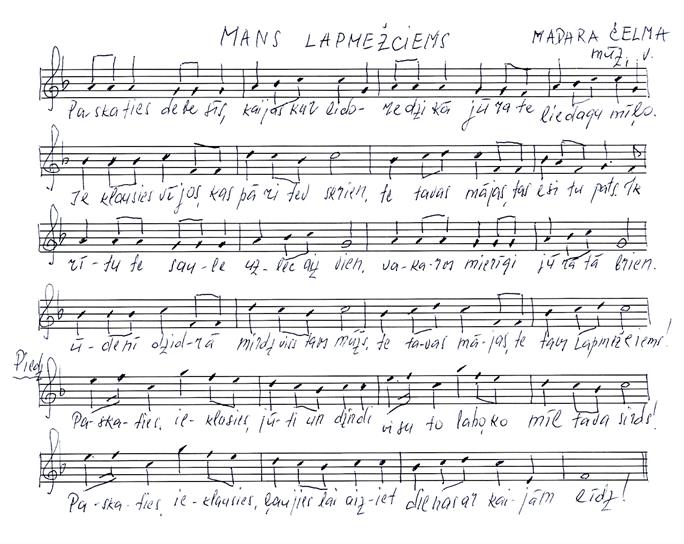 MANS LAPMEŽCIEMS
MADARA ČELMA
mūz., v.
Pa-skaties debesīs, kaijas kur lido- redzi kā jūra te liedagu mīļo.
Ieklausies vējos, kas pāri tev skrien, te tavas mājas, tas esi tu pats. Ik
rī-tu te sau-le uz-lēc aiz vien, va-ka-ros mierīgi jūrā tā brien.
ū-denī dzid-rā mirdz viss tavs mūžs, te ta-vas mā-jas, te tavs Lapmežciems!
Pied.
Pa-ska-ties, ie-klausies, jū-ti un dzirdi visu to labo, ko mīl tava sirds!
Pa-ska-ties, ie-klausies, ļaujies lai aiz-iet dienas ar kai-jām līdz!